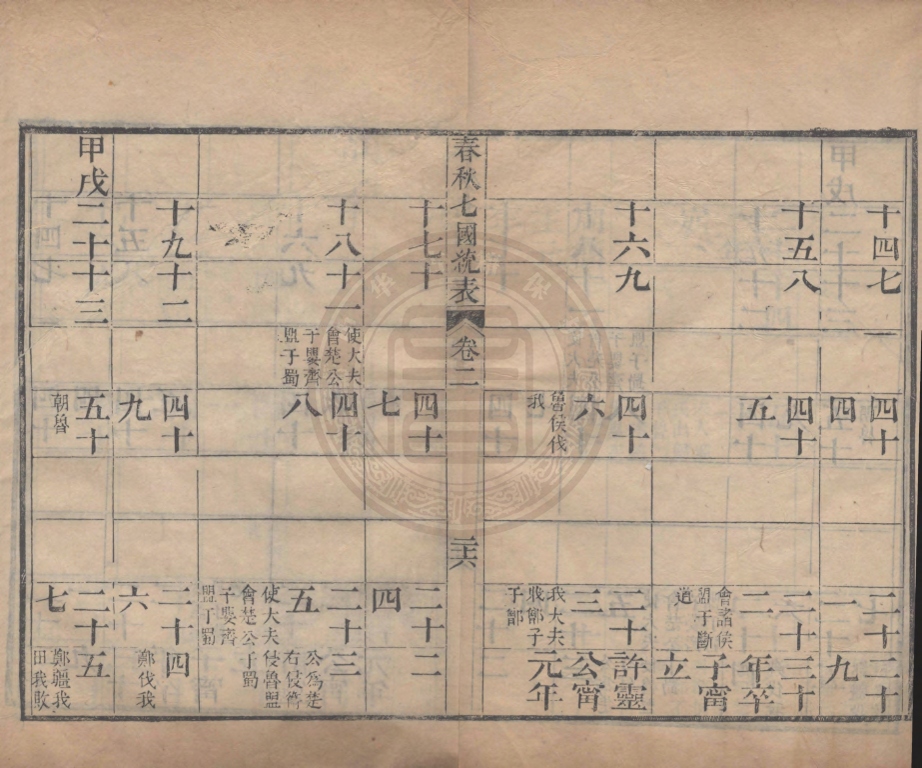 十四七
四十
四
二十
一
二十
九
十五八
四十
五
二十
二
會諸侯
盟于斷
道
三十
年卒
子甯
立
十六九
四十
六
魯侯伐
我
二十
三
我大夫
戕鄫子
于鄫
許靈
公甯
元年
春秋七國統表
卷二
二六
十七十
四十
七
二十
四
二
十八十一
使大夫
會楚公
子嬰齊
盟于蜀
四十
八
二十
五
使大夫
會楚公
子嬰齊
盟于蜀
三
公爲楚
右侵衛
侵魯盟
于蜀
十九十二
四十
九
二十
六
四
鄭伐我
甲戌
二十十三
五十
朝魯
二十
七
五
鄭疆我
田我敗